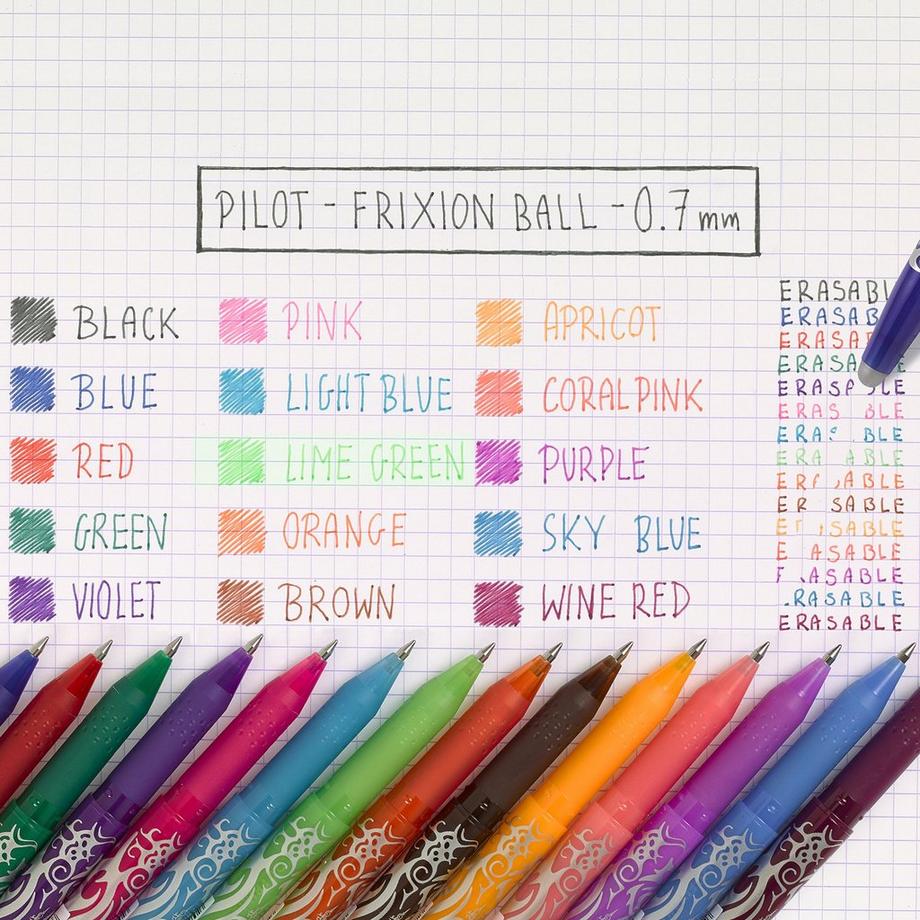 PILOT - FRIXION BALL - 0.7 mm
BLACK
BLUE
RED
GREEN
VIOLET
PINK
LIGHT BLUE
LIME GREEN
ORANGE
BROWN
APRICOT
CORAL PINK
PURPLE
SKY BLUE
WINE RED
ERASABL
ERASAB
ERASA
ERASA E
ERAS LE
ERAS BLE
ERA BLE
ERA ABLE
ER ABLE
ER SABLE
E SABLE
E ASABLE
ASABLE
RASABLE
ERASABLE